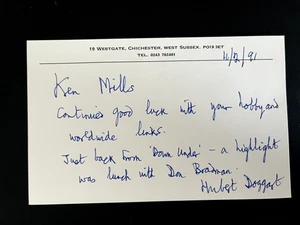 19 WESTGATE, CHICHESTER, WEST SUSSEX. PO19 3ET
TEL. 0243
4/2/91
Ken Mills
Continued good luck with your hobby and
worldwide links.
Just back from 'Down Under' - a highlight
was lunch with Don Bradman.
Hubert Doggart